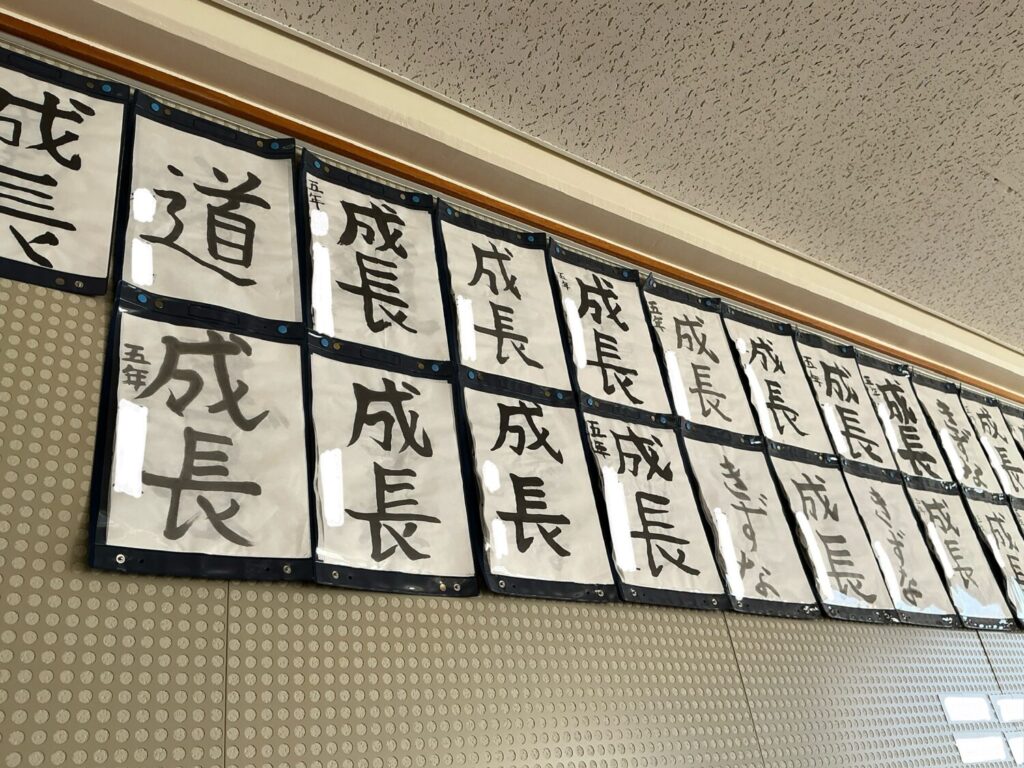 成長
道
成長
五年
成長
成長
五年
成長
五年
成長
成長
五年
成長
きずな
成長
成長
五年
成長
成長
成長
五年
きずな
成長
きずな
成長
成長